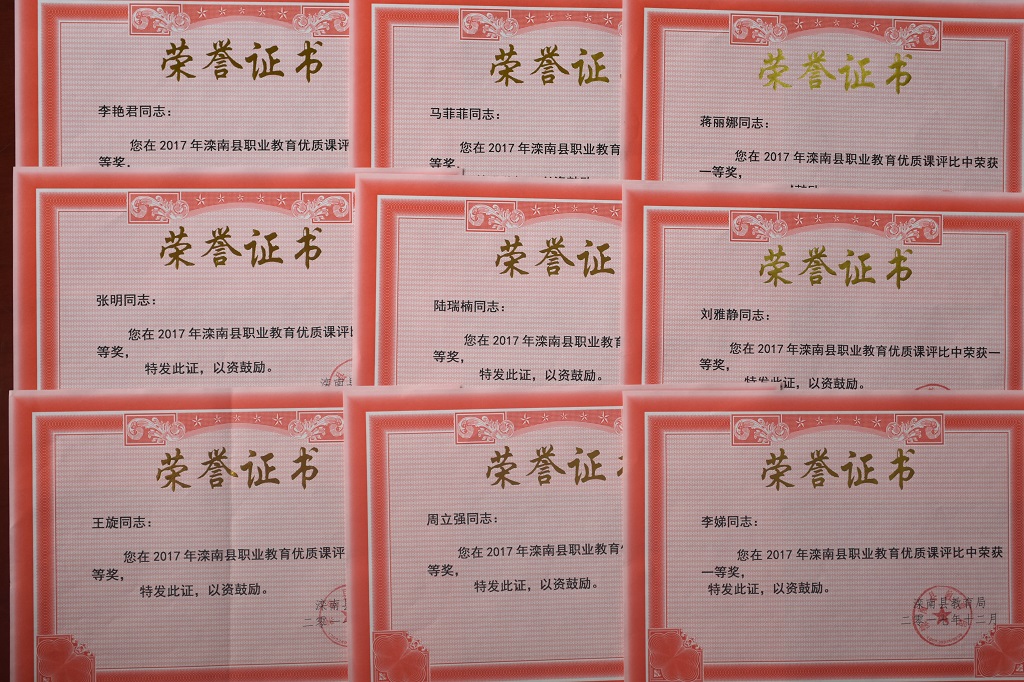 荣誉证书
李艳君同志：
您在 2017 年滦南县职业教育优质课评
等奖，
荣誉证
马菲菲同志：
您在 2017 年滦南县职业教育
等奖，
荣誉证书
蒋丽娜同志：
您在 2017 年滦南县职业教育优质课评比中荣获
一等奖，
荣誉证书
张明同志：
您在 2017 年滦南县职业教育优质课评
等奖，
特发此证，以资鼓励。
滦南县
荣誉证
陆瑞楠同志：
您在 2017 年滦南县职业教
等奖，
特发此证，以资鼓励。
荣誉证书
刘雅静同志：
您在 2017 年滦南县职业教育优质课评比中荣获一
等奖，
特发此证，以资鼓励。
荣誉证书
王旋同志：
您在 2017 年滦南县职业教育优质课评
等奖，
特发此证，以资鼓励。
滦南县
二零一
荣誉证
周立强同志：
您在 2017 年滦南县职业教育
等奖，
特发此证，以资鼓励。
荣誉证书
李娣同志：
您在 2017 年滦南县职业教育优质课评比中荣获
一等奖，
特发此证，以资鼓励。
滦南县教育局
二零一七年十二月